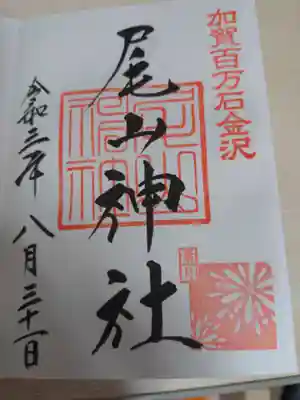 加賀百万石金沢
尾山神社
令和三年 八月三十一日